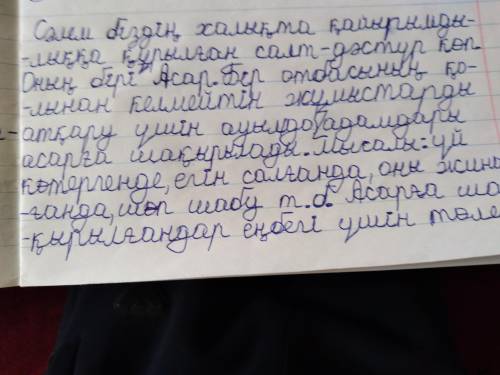 Сәлем біздің халықта қайырымды-
-лыққа құрылған салт-дәстүр көп.
Оның бірі "Асар. Бер отбасының қо-
-лынан келмейтін жұмыстарды
-атқару үшін ауылдо адамдары
асарға шақырылады. Мысалы: үй
көтергенде, егін салғанда, оны жина
-ғанда, шөп шабу т.б. Асарға ша
-қырылғандар еңбегі үшін төле